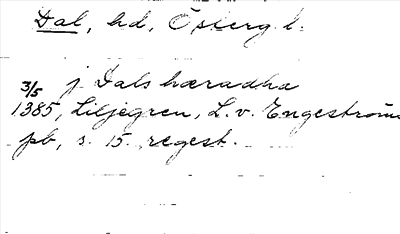 Dal, hd, Österg l.
3/5 j Dals hæradha
1385, Liljegren, L. v. Engeström
pb, s. 15. regest.